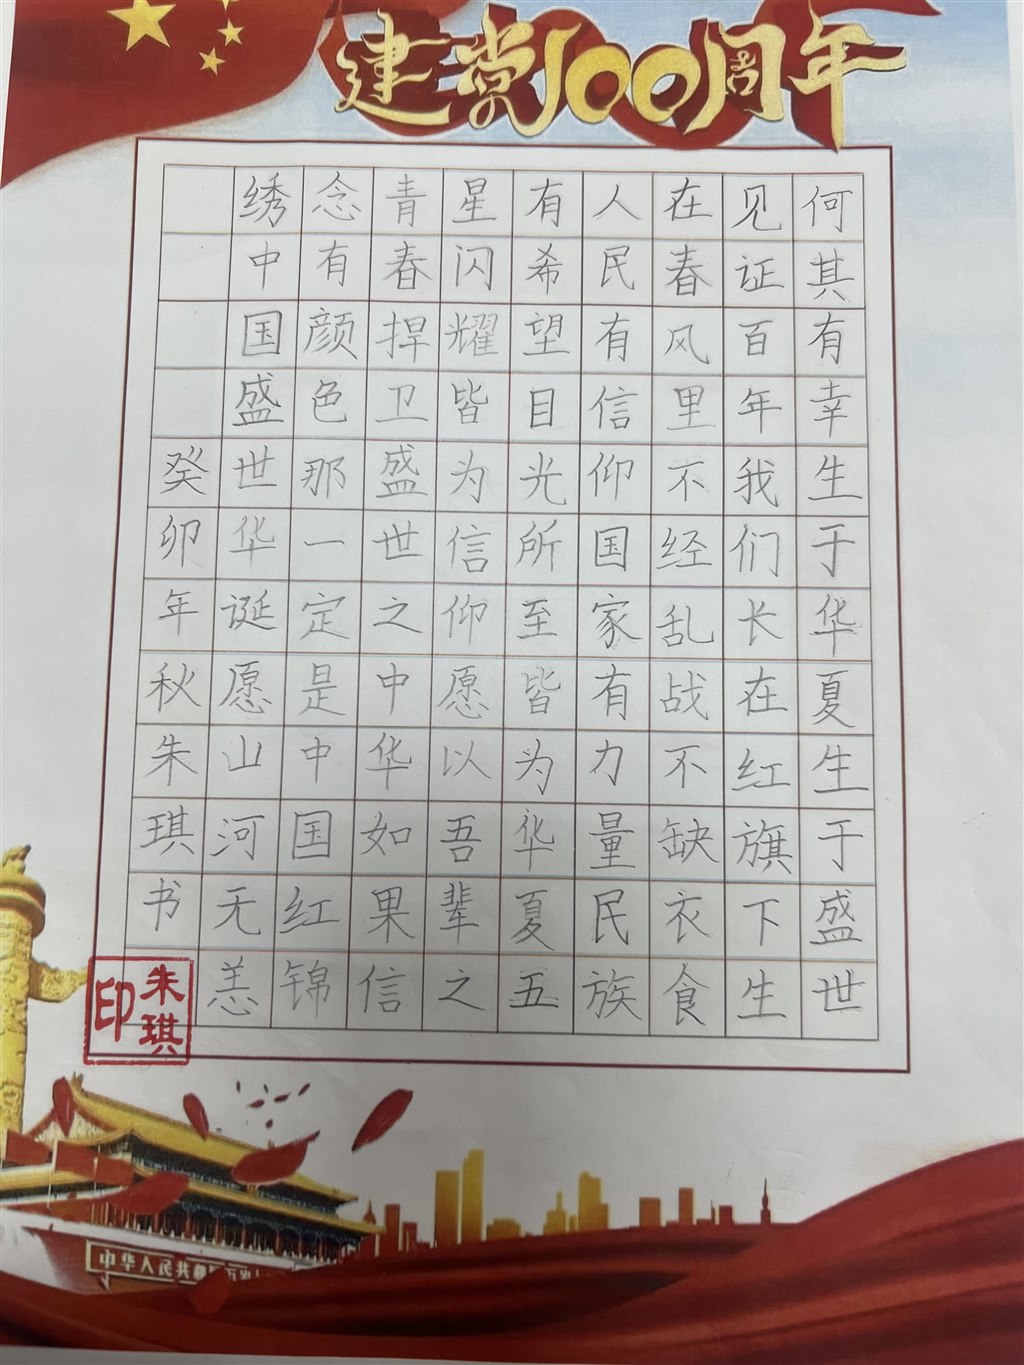 建党100周年
何其有幸生于华夏生于盛世
见证百年我们长在红旗下生
在春风里不经乱战不缺衣食
人民有信仰国家有力量民族
有希望目光所至皆为华夏五
星闪耀皆为信仰愿以吾辈之
青春捍卫盛世之中华如果信
念有颜色那一定是中国红锦
绣中国盛世华诞愿山河无恙
癸卯年秋朱琪书
朱琪印
中华人民共和国万岁